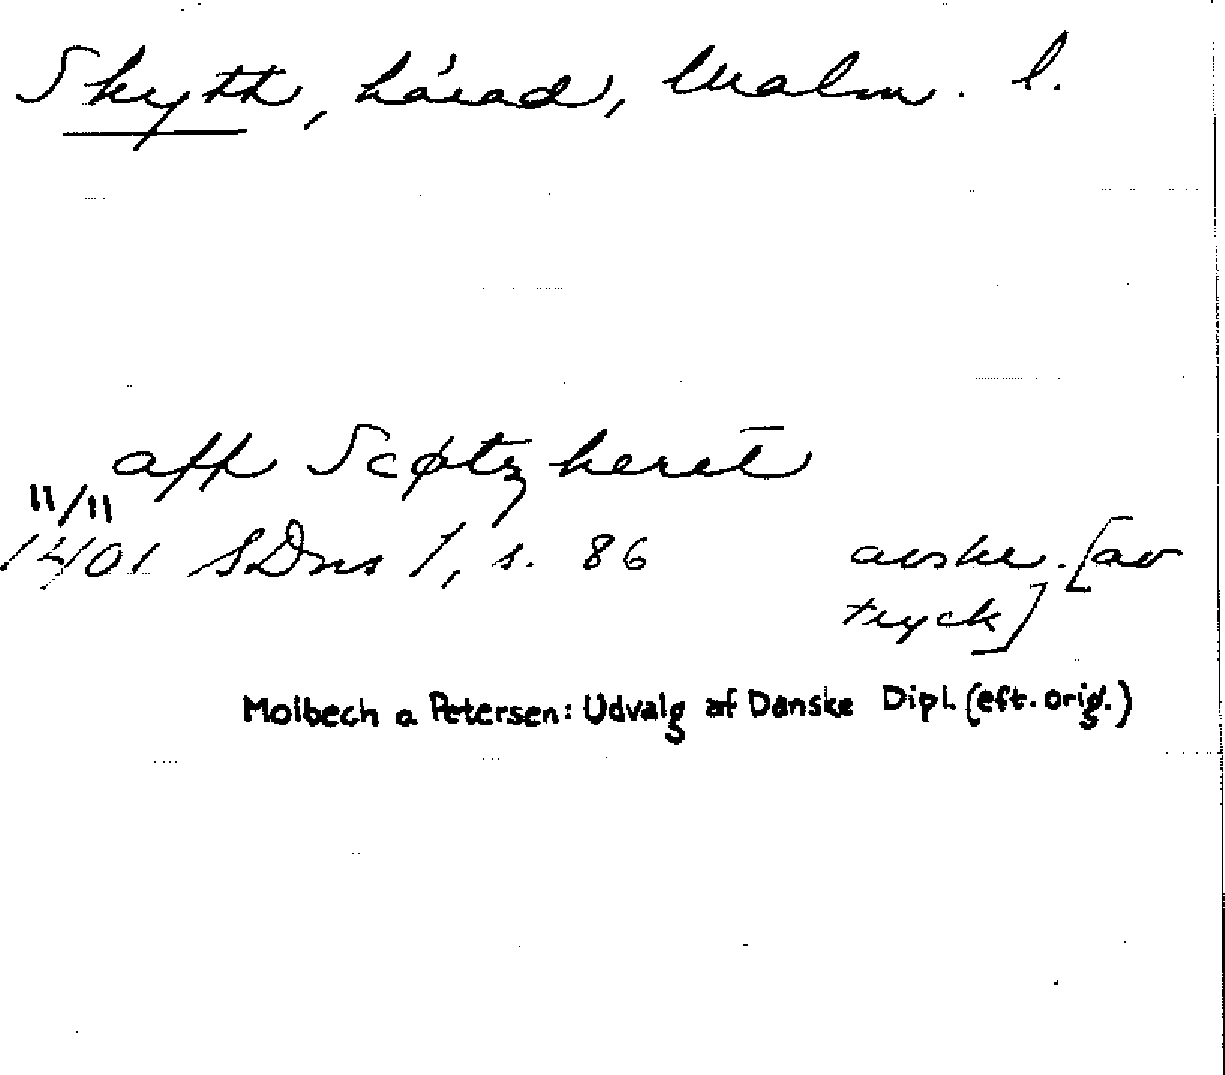 Skytts härad, Malm. l.
aff Scøtz heret
11/11
1401 SDns 1, s. 86 avskr. [av
tryck]
Molbech o Petersen: Udvalg af Danske Dipl. (eft. orig.)